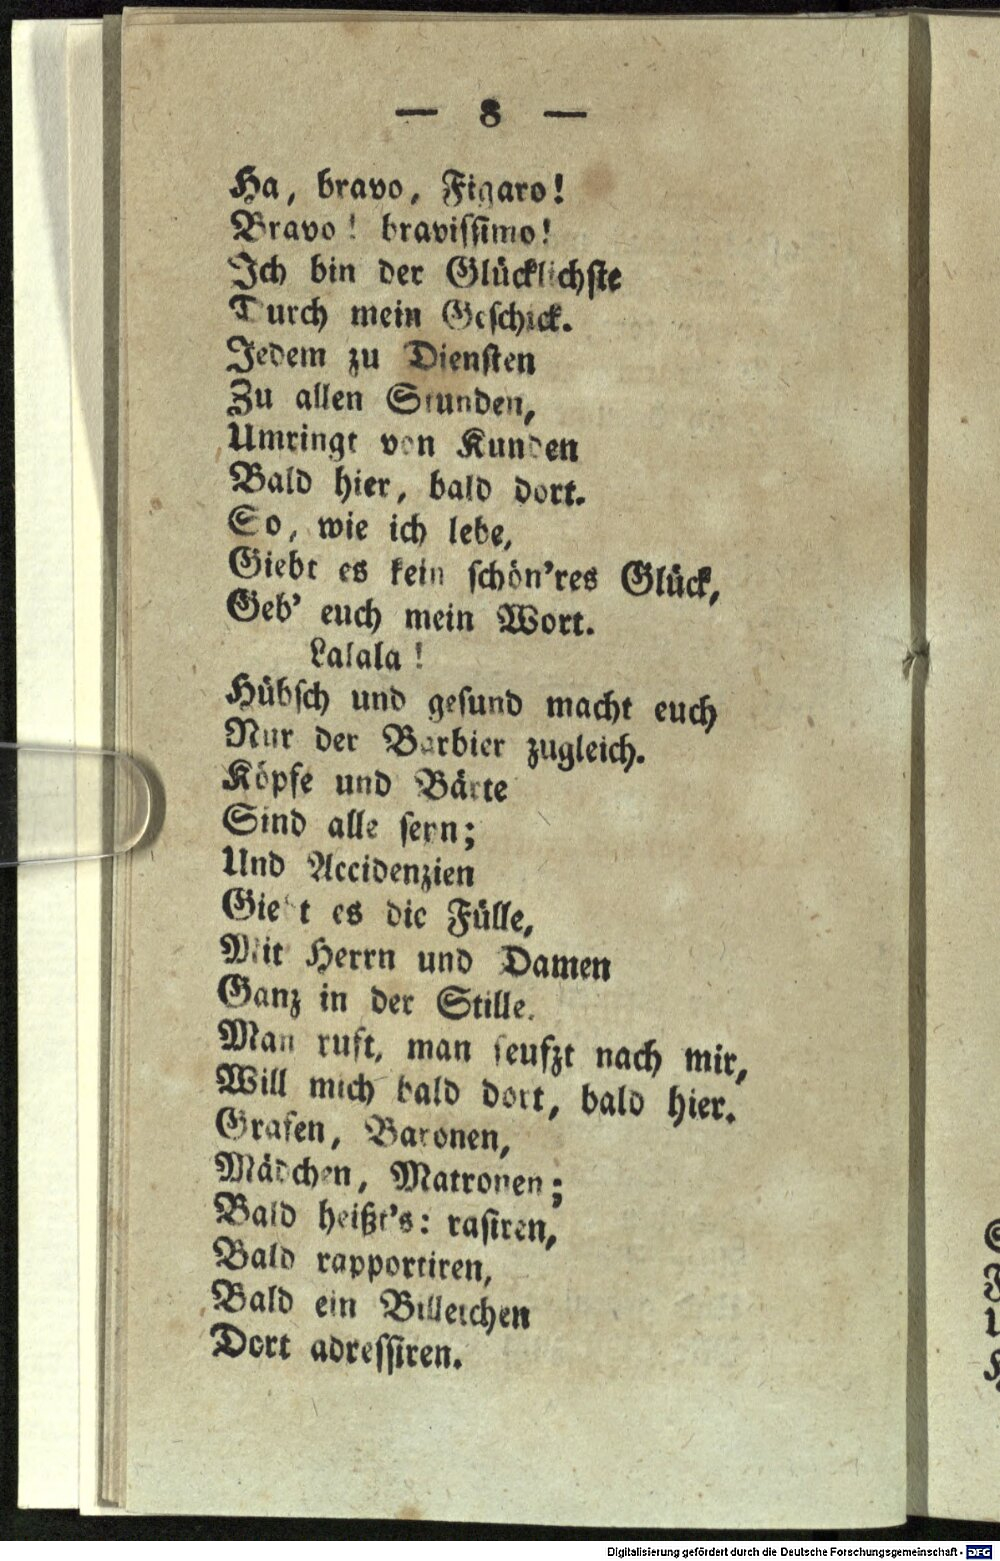 — 8 —
Ha, bravo, Figaro!
Bravo! bravissimo!
Ich bin der Glücklichste
Durch mein Geschick.
Jedem zu Diensten
Zu allen Stunden,
Umringt von Kunden
Bald hier, bald dort.
So, wie ich lebe,
Giebt es kein schön'res Glück,
Geb' euch mein Wort.
Lalala!
Hübsch und gesund macht euch
Nur der Barbier zugleich.
Köpfe und Bärte
Sind alle seyn;
Und Accidenzien
Giebt es die Fülle,
Mit Herrn und Damen
Ganz in der Stille.
Man ruft, man seufzt nach mir,
Will mich bald dort, bald hier.
Grafen, Baronen,
Mädchen, Matronen;
Bald heißt's: rasiren,
Bald rapportiren,
Bald ein Billetchen
Dort adressiren.
Digitalisierung gefördert durch die Deutsche Forschungsgemeinschaft - DFG